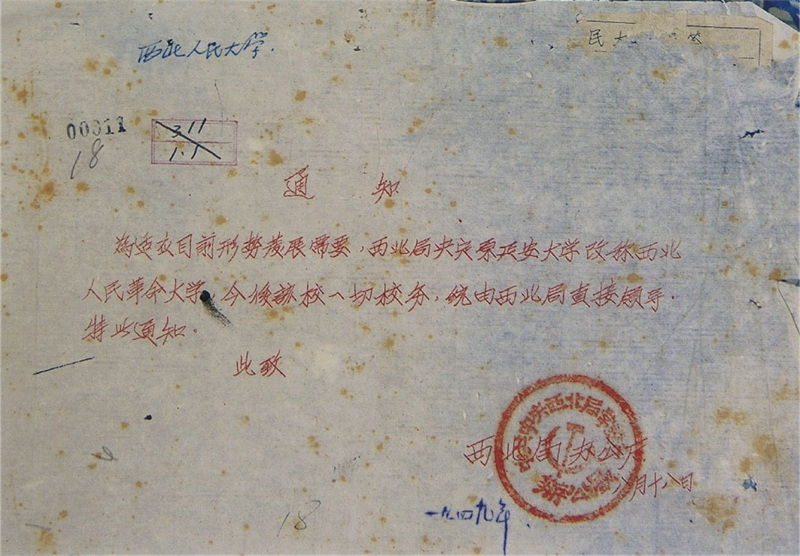 西北人民大学.
民大
00311
311
1.1
18
通 知
為适应目前形势发展需要，西北局决定原延安大学改称西北
人民革命大学，今後該校一切校务，统由西北局直接领导.
特此通知.
此致
西北局办公厅
八月十八日
一九四九年
18